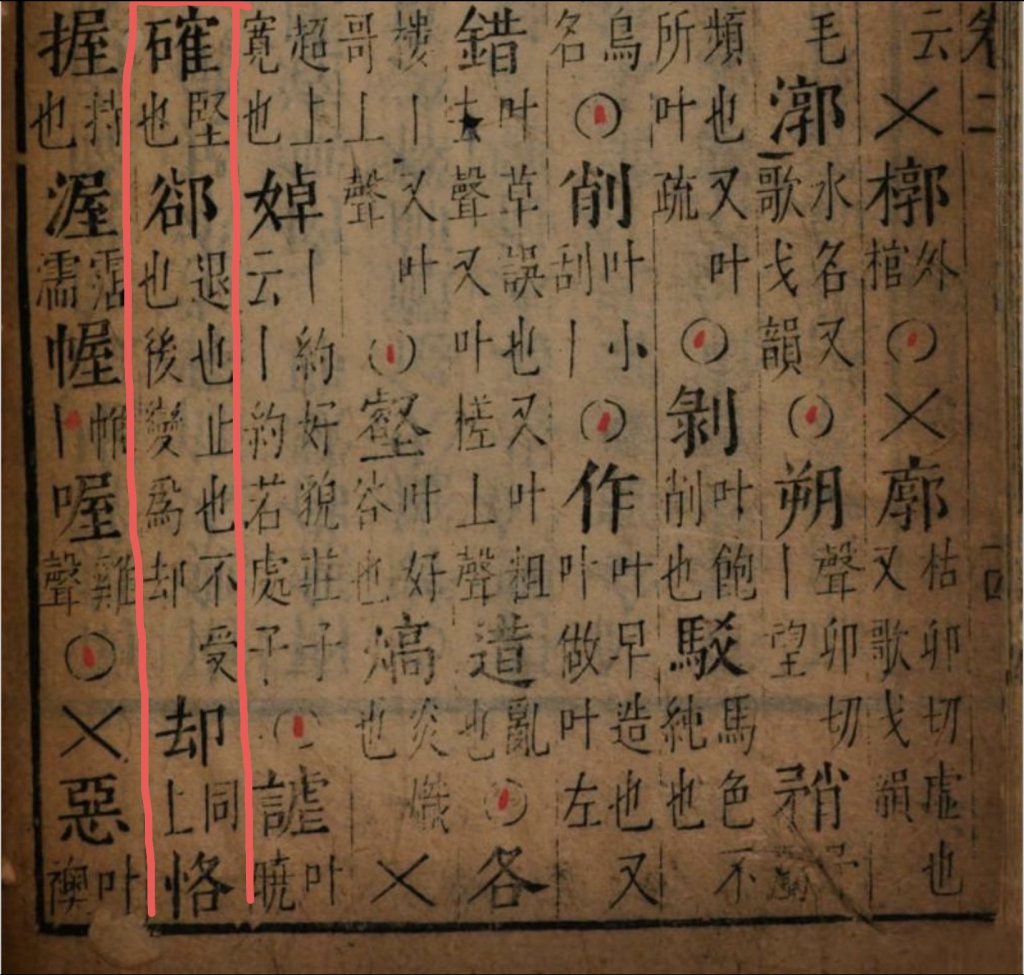 卷二
云╳槨外棺〇╳廓枯卯切虛也又歌戈韻
毛漷水名又歌戈韻〇朔聲卯切丨望矟矛屬
頻也又叶所叶疏〇剝叶飽削也駁馬色不純也
烏名〇削叶小刮丨〇作叶早造也又叶做叶左
錯叶草誤也又叶粗去聲又叶槎上聲造亂也〇各
摟丨又叶哥上聲〇壑叶好谷也熇炎熾也╳
超上寬也婥丨約好貌莊子云丨約若處子〇謔叶曉
確堅也卻退也止也不受也後變爲却却同上恪
握持也渥霑濡幄帷丨喔雞聲〇╳惡叶襖